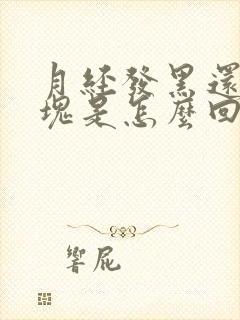 月經發黑還
塊是怎麼回
響屁